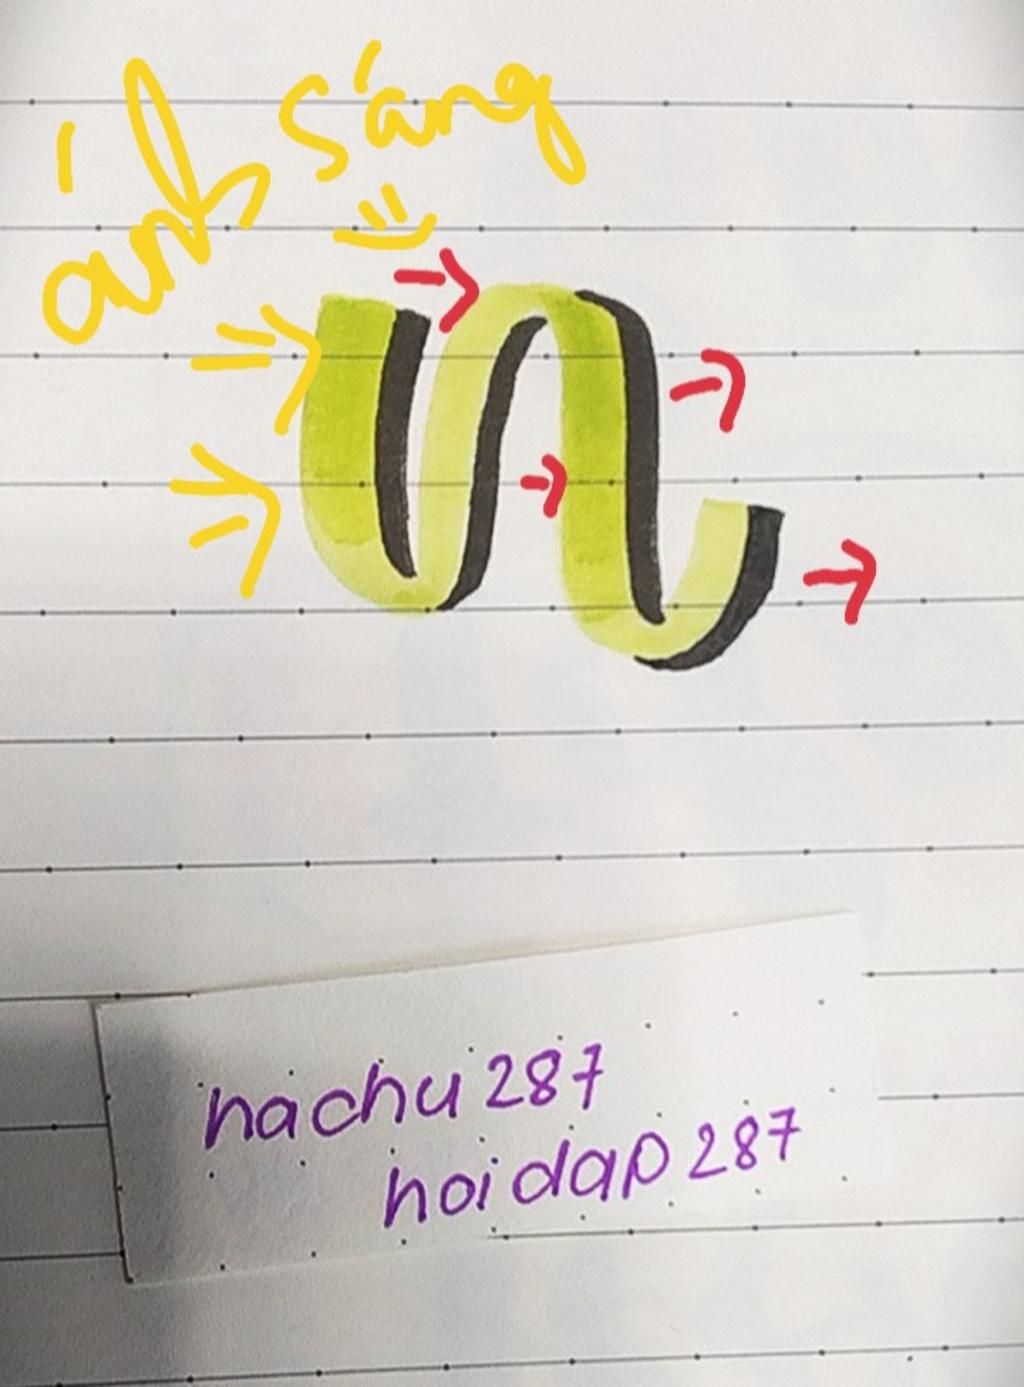 ánh sáng
hachu287
hoidap287